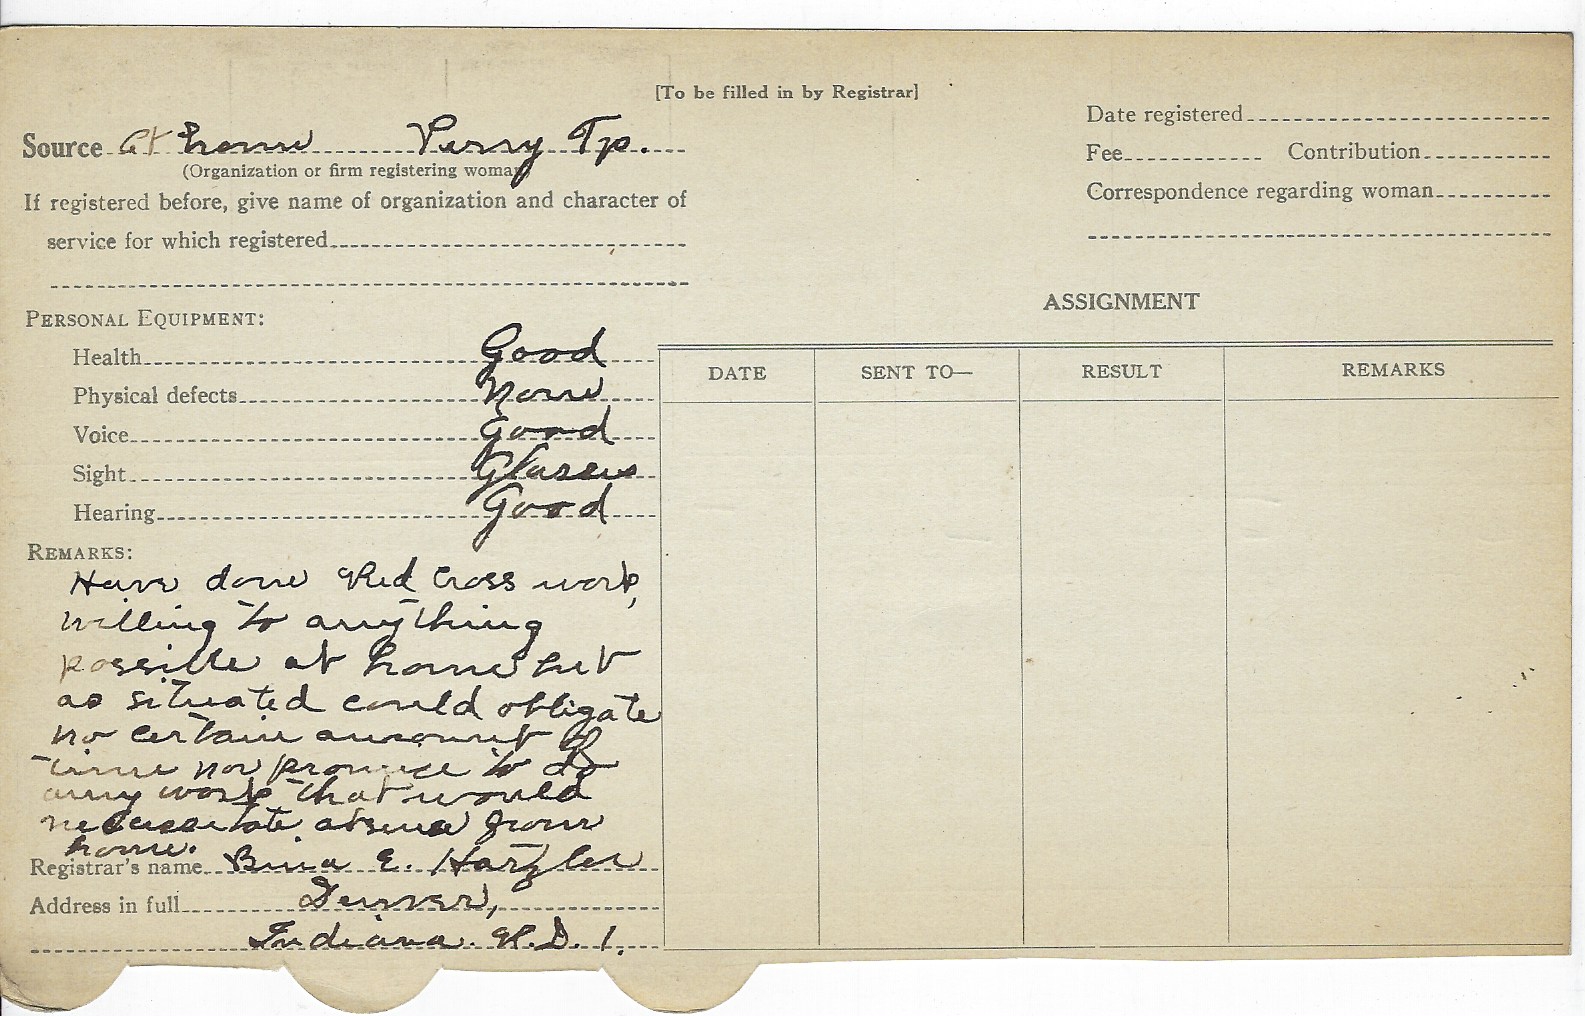 [To be filled in by Registrar]
Source At home Perry Tp.
(Organization or firm registering woman)
If registered before, give name of organization and character of
service for which registered
Date registered
Fee Contribution
Correspondence regarding woman
PERSONAL EQUIPMENT:
Health Good
Physical defects None
Voice Good
Sight Glasses
Hearing Good
REMARKS:
Have done Red Cross work,
willing to anything
possible at home but
as situated could obligate
no certain amount of
time nor promise to do
any work that would
necessitate absence from
home.
Registrar's name Bina E. Hartzler
Address in full Denver,
Indiana. R.D. 1.
ASSIGNMENT
DATE SENT TO— RESULT REMARKS